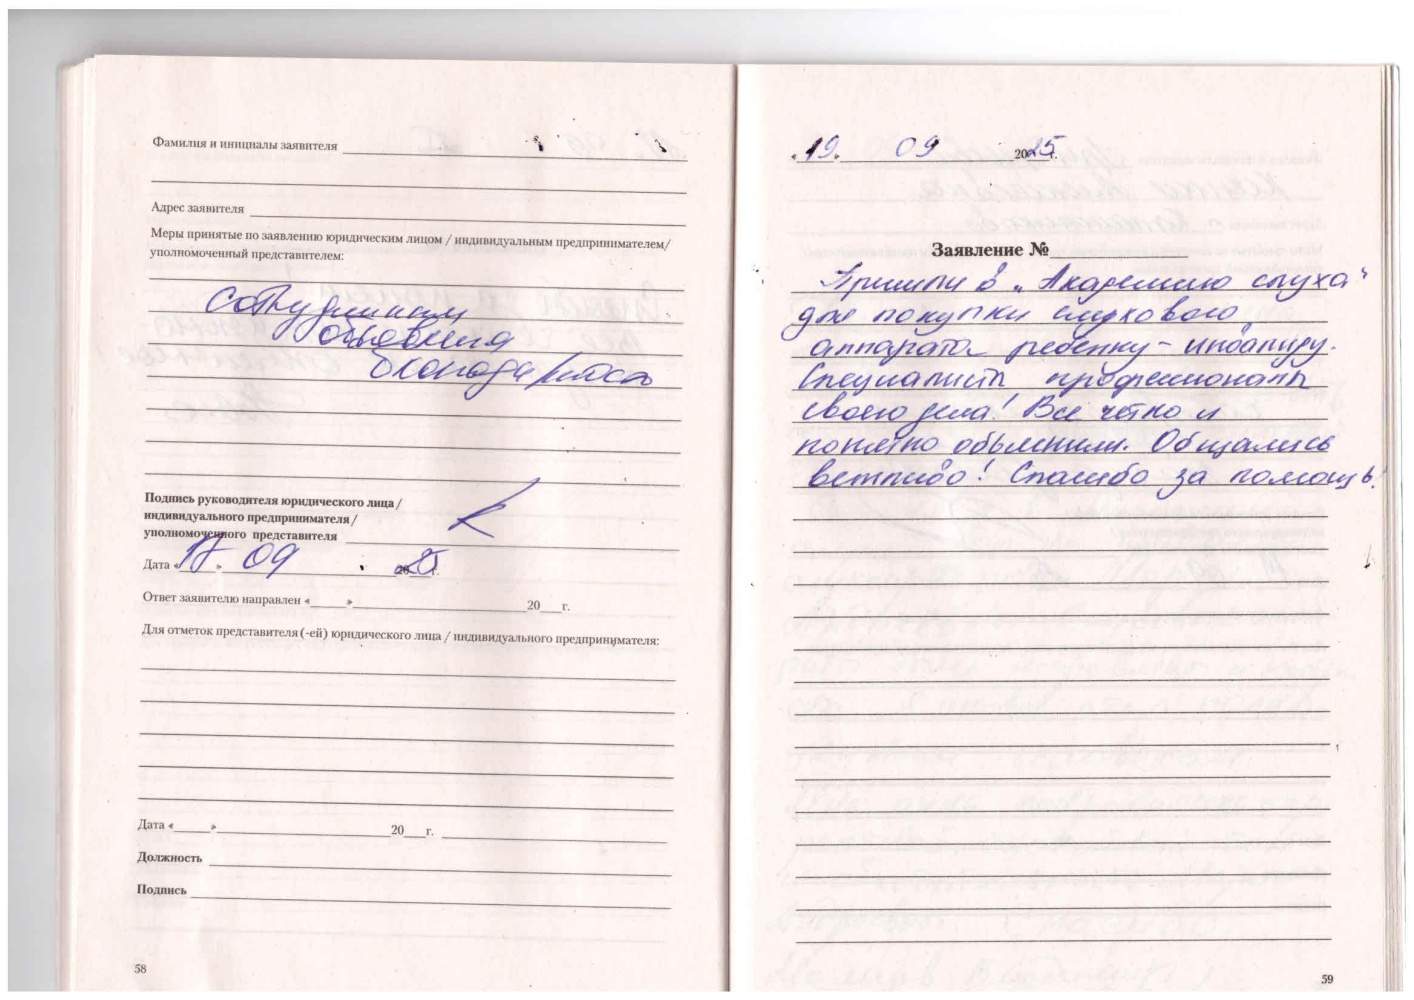 Фамилия и инициалы заявителя
Адрес заявителя
Меры принятые по заявлению юридическим лицом / индивидуальным предпринимателем/
уполномоченный представителем:
Сотрудникам
объявлена
благодарность
Подпись руководителя юридического лица /
индивидуального предпринимателя /
уполномоченного представителя
Дата «17» 09 2025 г.
Ответ заявителю направлен «____»____ 20___г.
Для отметок представителя (-ей) юридического лица / индивидуального предпринимателя:
Дата «____»____ 20___г.
Должность
Подпись
58
«19» 09 2025г.
Заявление №
Пришли в „Академию слуха"
для покупки слухового
аппарата ребенку - инвалиду.
Специалисты профессионалы
своего дела! Все четко и
понятно объяснили. Общались
вежливо! Спасибо за помощь!
59